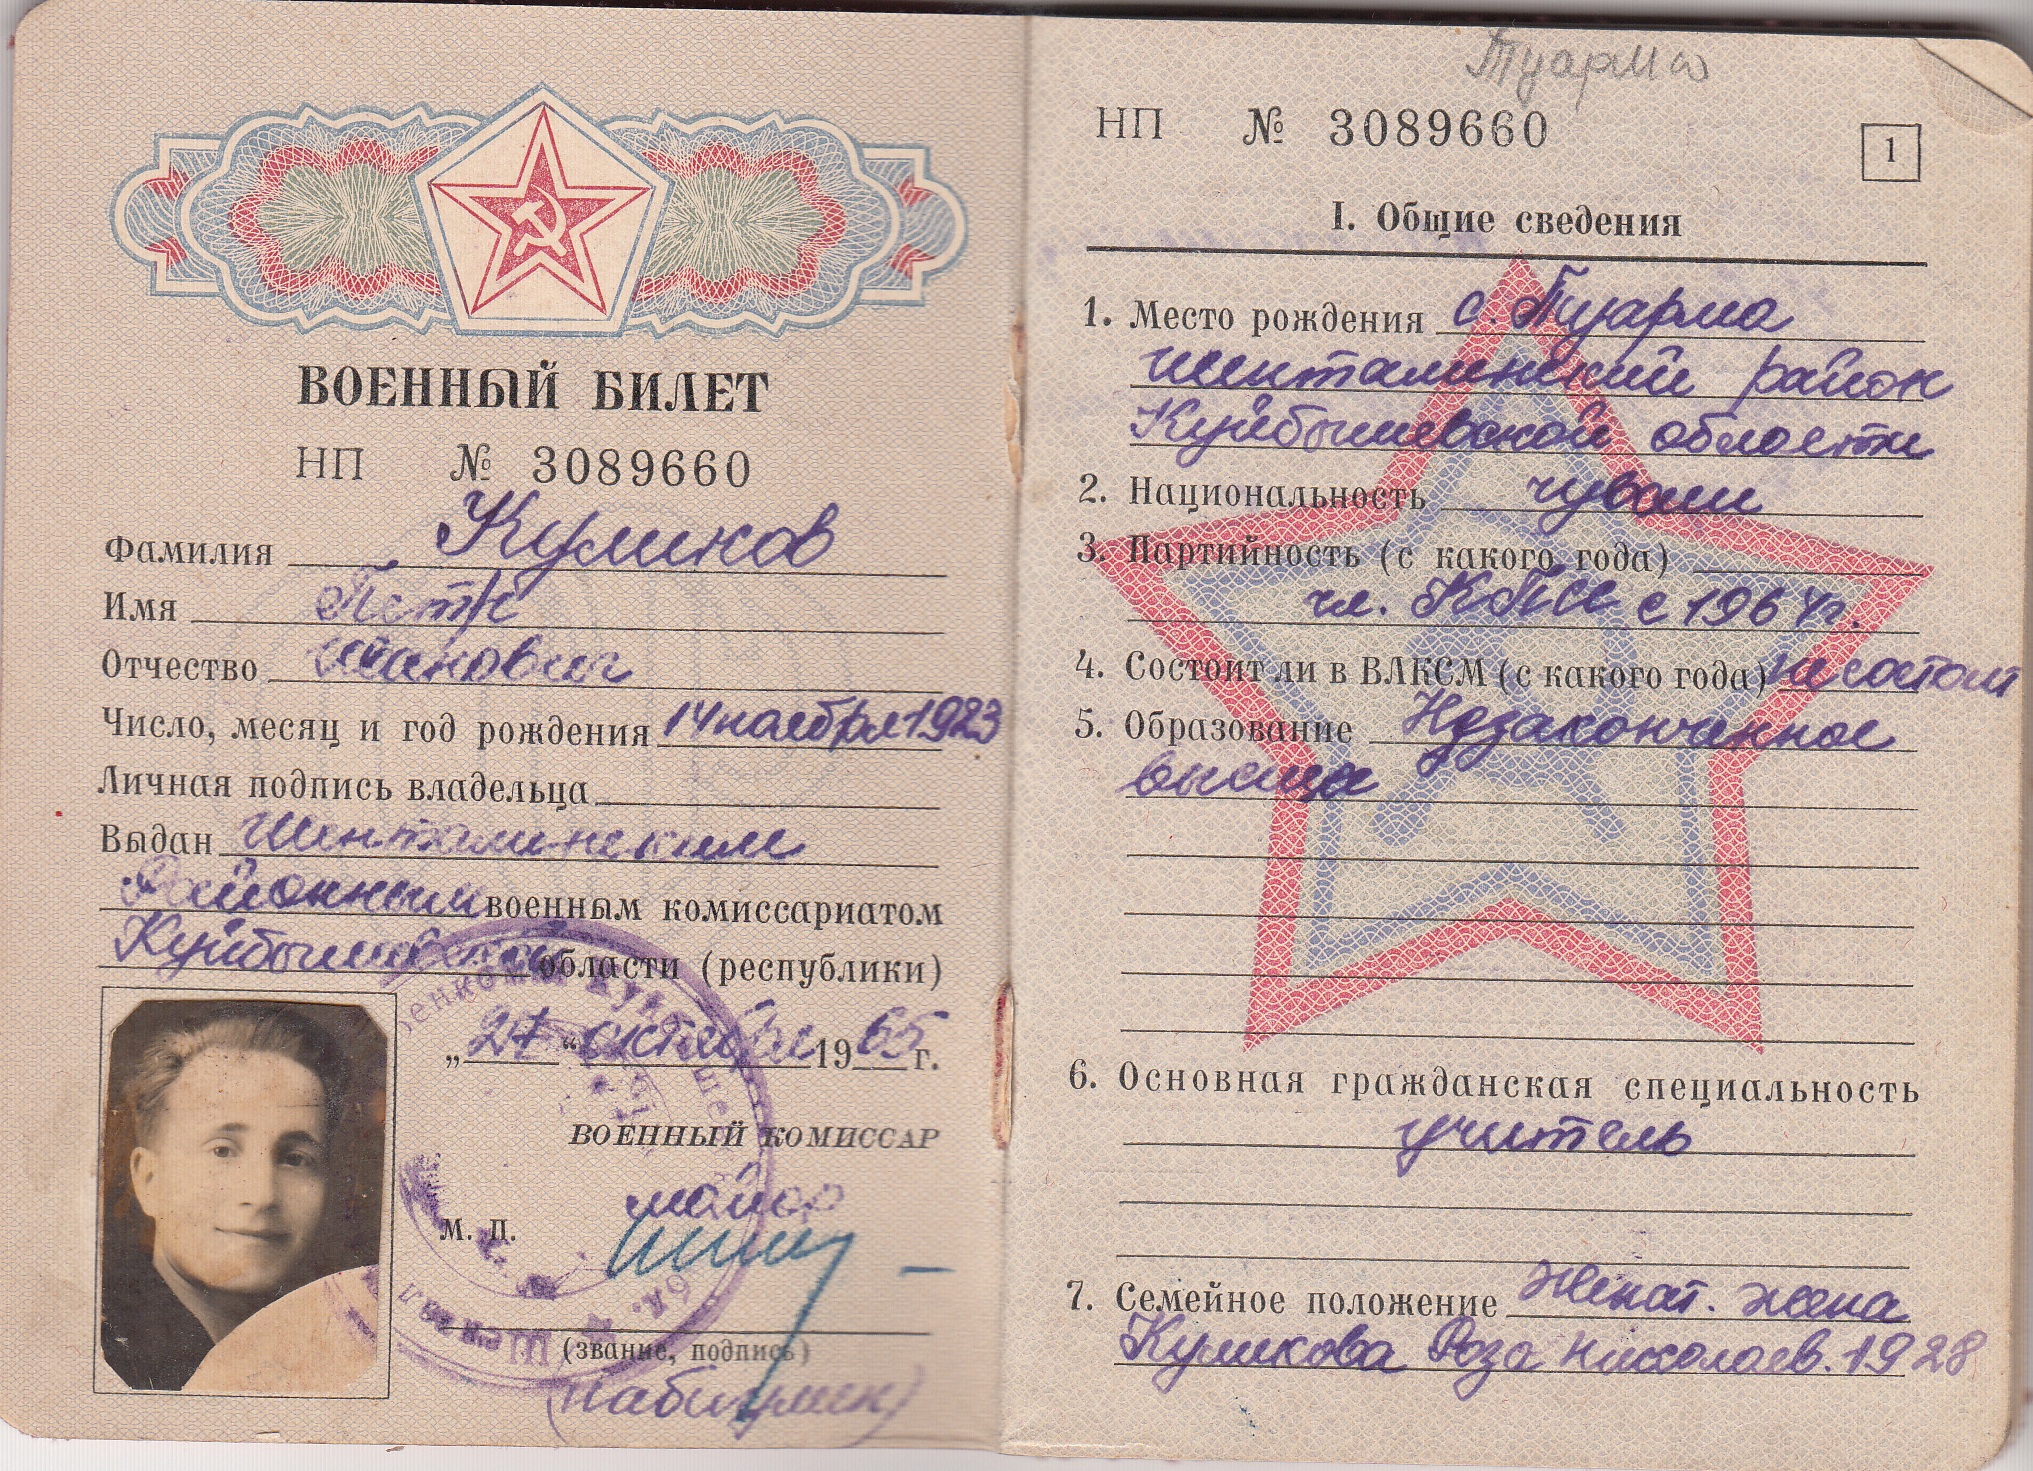 ВОЕННЫЙ БИЛЕТ
НП № 3089660
Фамилия Куликов
Имя Петр
Отчество Иванович
Число, месяц и год рождения 14 ноября 1923
Личная подпись владельца
Выдан Шенталинским
Районным военным комиссариатом
Куйбышевской области (республики)
„27“ октября 1965 г.
ВОЕННЫЙ КОМИССАР
майор
М. П.
(звание, подпись)
Туарма
НП № 3089660
1
I. Общие сведения
1. Место рождения с. Туарма
Шенталинский район
Куйбышевской области
2. Национальность чуваш
3. Партийность (с какого года)
чл. КПСС с 1964 г.
4. Состоит ли в ВЛКСМ (с какого года) не состоит
5. Образование Незаконченное
высшее
6. Основная гражданская специальность
учитель
7. Семейное положение женат. жена
Куликова Роза Николаев. 1928